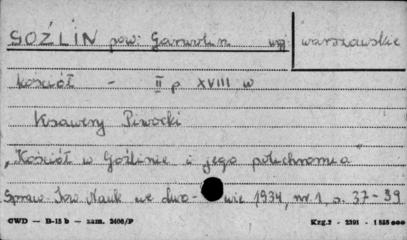 GOŹLIN pow. Garwolin woj. warszawskie
Kościół - II p XVIII w
Ksawery Piwocki
„Kościół w Goźlinie i jego polichromia"
Spraw. Tow. Nauk we Lwo- wie 1934, nr. 1, s. 37-39
CWD — B-15 b — zam. 2406/P Krg.2 - 2391 -